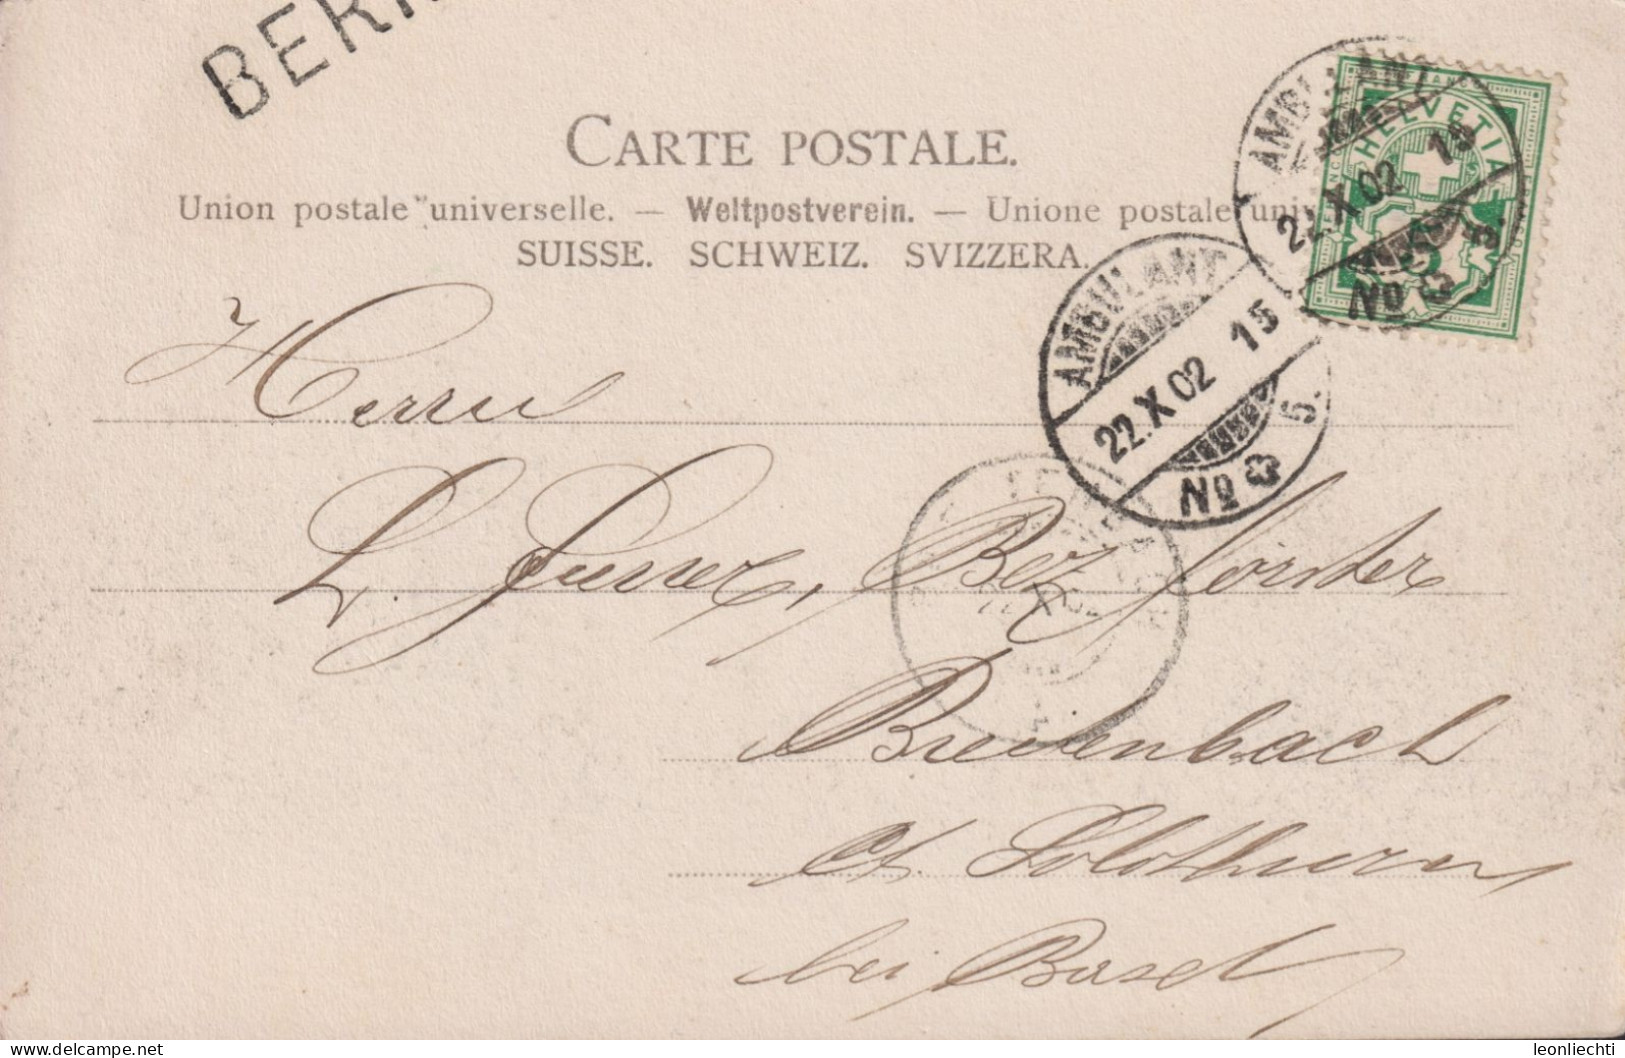 BER
CARTE POSTALE.
Union postale universelle. — Weltpostverein. — Unione postale uni
SUISSE. SCHWEIZ. SVIZZERA.
AMBULANT
22.X.02 15
No 5.
HELVETIA
AMBULANT
22.X.02 15
No 5.
Herrn
L. Furrer, Bez. förster
Breitenbach
Ct. Solothurn
bei Basel
leonliechti